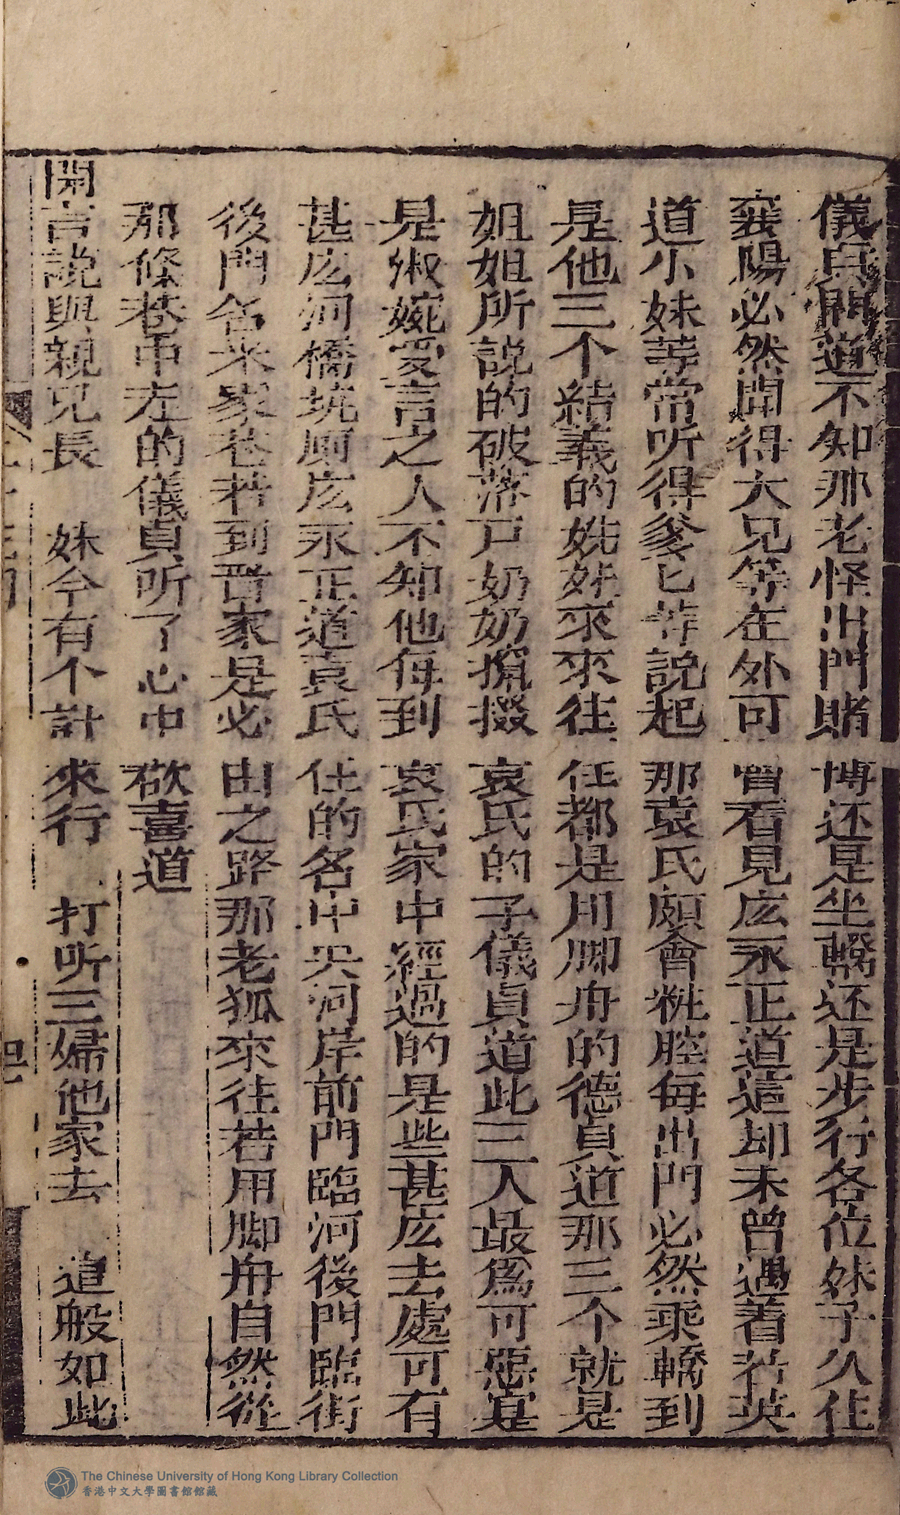 儀貞問道不知那老怪出門賭博还是坐轎还是步行各位妹子久住
襄陽必然聞得大兄等在外可曾看見庅永正道這却未曾遇着若英
道小妹等常听得爹匕等說起那袁氏頗會粧腔每出門必然乘轎到
是他三个結義的姊妹來來往往都是用脚舟的德貞道那三个就是
姐姐所説的破落戸奶奶撺掇袁氏的子儀貞道此三人最爲可惡寔
是淑婉愛言之人不知他每到袁氏家中經過的是些甚庅去處可有
甚庅河橋坑厠庅永正道袁氏住的名中央河岸前門臨河後門臨街
後門名米家巷若到晋家是必由之路那老狐來往若用脚舟自然從
那條巷中左的儀貞听了心中欢喜道
開言說與親兄長 妹今有个計來行 打听三婦他家去 這般如此
The Chinese University of Hong Kong Library Collection
香港中文大學圖書館館藏